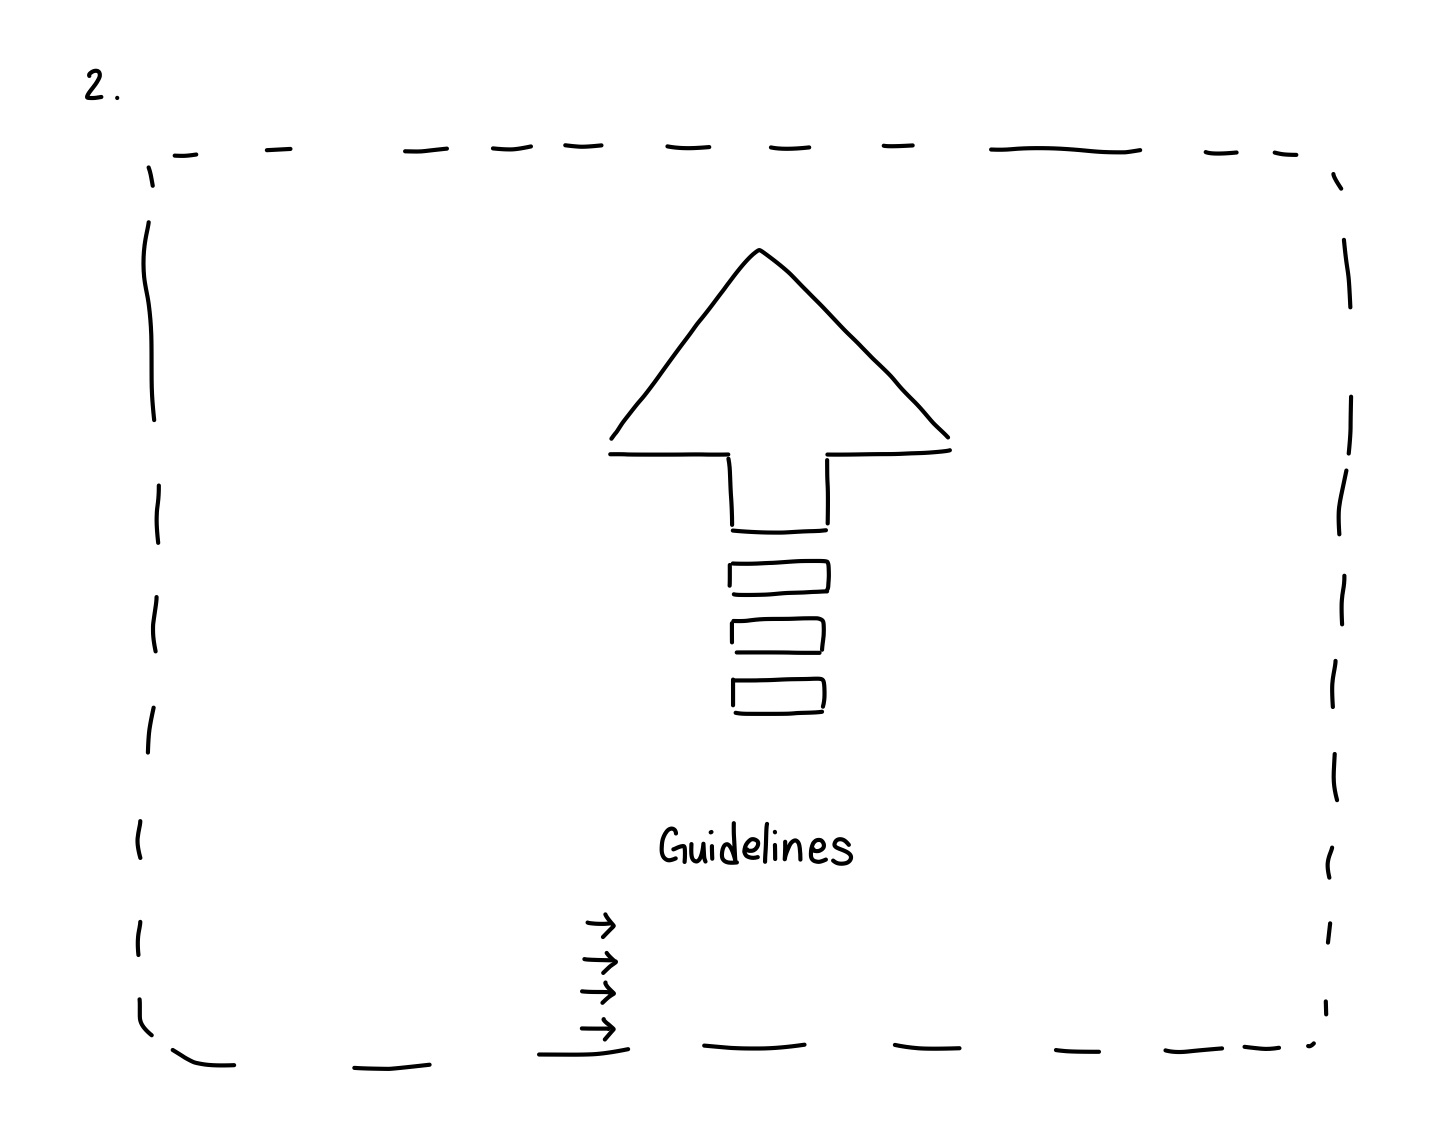 2.
Guidelines
→
→
→
→